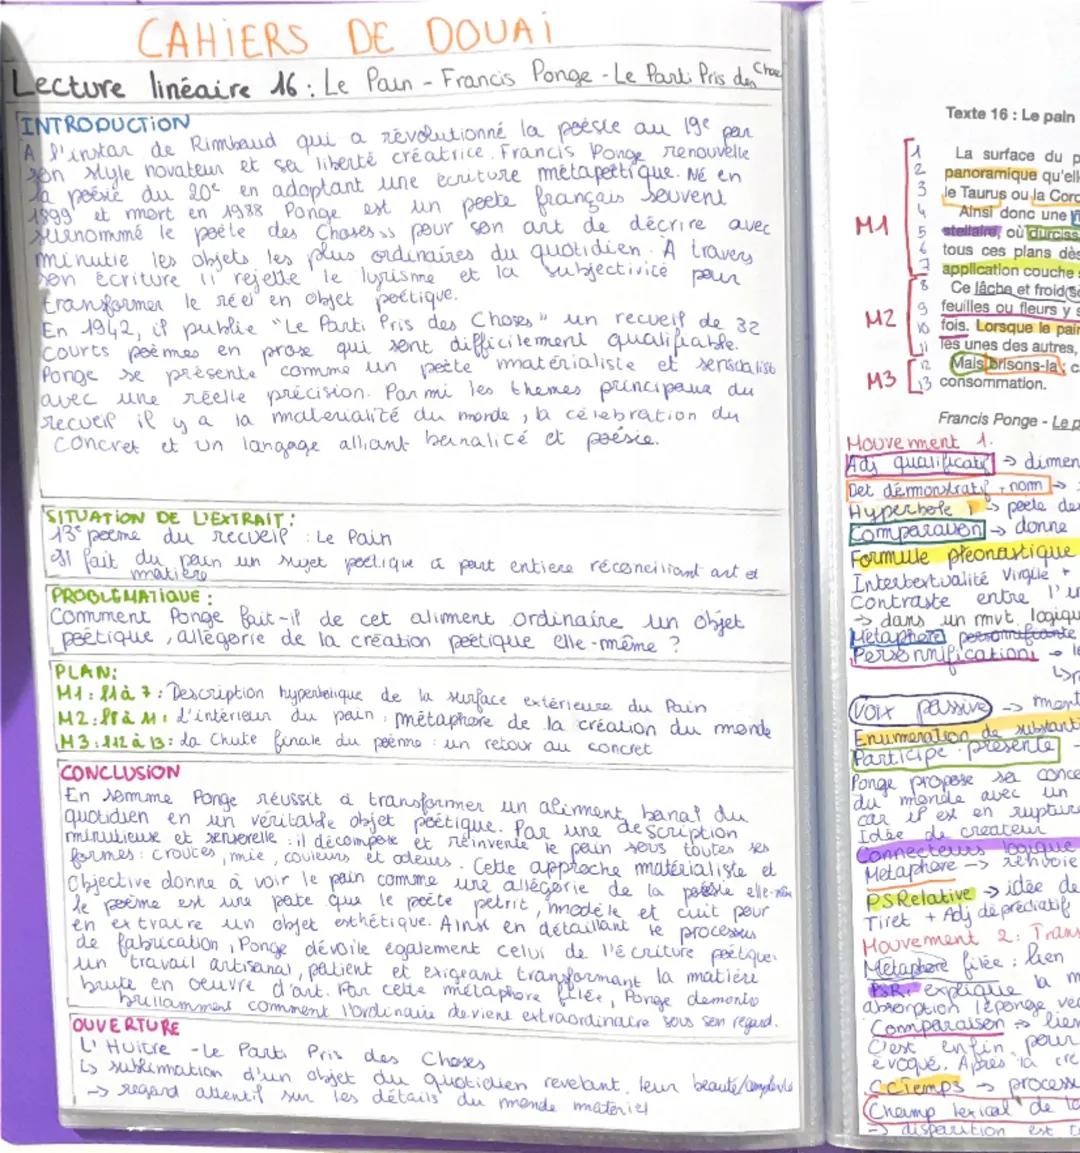 CAHIERS DE DOUAI
Lecture linéaire 16 : Le Pain - Francis Ponge - Le Parti Pris des Choses
INTRODUCTION
A l'instar de Rimbaud qui a révolutionné la poésie au 19e par
son style novateur et sa liberté créatrice. Francis Ponge renouvelle
la poésie du 20e en adoptant une écriture métapoétique. Né en
1899 et mort en 1988 Ponge est un poète français souvent
surnommé le poète des Choses >> pour son art de décrire avec
minutie les objets les plus ordinaires du quotidien. A travers
son écriture il rejette le lyrisme et la subjectivité pour
transformer le réel en objet poétique.
En 1942, il publie "Le Parti Pris des Choses" un recueil de 32
Courts poèmes en prose qui sont difficilement qualifiable.
Ponge se présente comme un poète matérialiste et sensualiste
avec une réelle précision. Parmi les themes principaux du
recueil il y a la matérialité du monde, la célébration du
concret et un langage alliant banalité et poésie.
SITUATION DE L'EXTRAIT :
13e poème du recueil : Le Pain
Il fait du pain un sujet poétique à part entiere réconciliant art et
matière
PROBLÉMATIQUE :
Comment Ponge fait-il de cet aliment ordinaire un objet
poétique, allégorie de la création poétique elle-même ?
PLAN:
M1 : l1 à 7 : Description hyperbolique de la surface extérieure du Pain
M2 : l8 à 11 : L'intérieur du pain, métaphore de la création du monde
M3 : l12 à 13 : La Chute finale du poème : un retour au concret
CONCLUSION
En somme Ponge réussit à transformer un aliment banal du
quotidien en un véritable objet poétique. Par une description
minutieuse et sensorielle : il décompose et réinvente le pain sous toutes ses
formes : croutes, mie, couleurs et odeurs. Cette approche matérialiste et
Objective donne à voir le pain comme une allégorie de la poésie elle-même
le poème est une pate que le poète petrit, modèle et cuit pour
en extraire un objet esthétique. Ainsi en détaillant le processus
de fabrication, Ponge dévoile également celui de l'écriture poétique:
un travail artisanal, patient et exigeant transformant la matière
brute en oeuvre d'art. Par cette métaphore filée, Ponge demontre
brillamment comment l'ordinaire devient extraordinaire sous son regard.
OUVERTURE
L'Huitre - Le Parti Pris des Choses
↳ sublimation d'un objet du quotidien revelant leur beauté/
→ regard attentif sur les détails du monde matériel
Texte 16 : Le pain
M1
1 La surface du p
2 panoramique qu'ell
3 le Taurus ou la Cord
4 Ainsi donc une
5 stellaire, où durciss
6 tous ces plans dès
7 application couche
M2
8 Ce lâche et froid
9 feuilles ou fleurs y s
10 fois. Lorsque le pain
11 les unes des autres,
M3
12 Mais brisons-la : c
13 consommation.
Francis Ponge - Le p
Mouvement 1.
Adj qualificatif → dimen
Det démonstratif + nom →
Hyperbole → poète de
Comparaison → donne
Formule pléonastique
Intertextualité Virgile +
Contraste entre l'
→ dans un mvt. logiqu
Métaphore personnifiante
Personnification →
Voix passive → mont
Enumeration de substanti
Participe présente
Ponge propose sa conce
du monde avec un
car il est en rupture
Idée de createur
Connecteurs logique
Métaphore → renvoie
PSRelative → idée de
Tiret + Adj dépréciatif
Mouvement 2: Trans
Métaphore filée : lien
PSR. explique la m
absorption (éponge ve
Comparaison → lien
C'est enfin pour
évoqué. Après la cre
CCTemps → processu
Champ lexical de la
→ disparition est